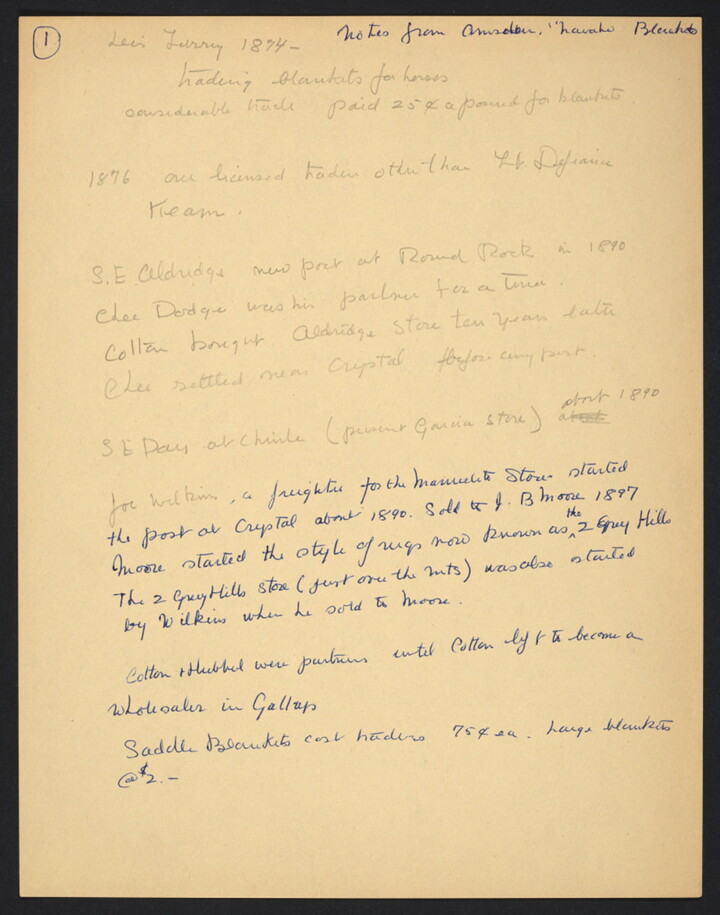 1
Notes from Amsden, "Navaho Blankets
Lees Ferry 1874 -
trading blankets for horses
considerable trade paid 25¢ a pound for blankets.
1876 one licensed trader other than Ft. Defiance
Keam.
S.E. Aldridge new post at Round Rock in 1890
Chee Dodge was his partner for a time.
Cotton bought Aldridge Store ten years later
Chee settled near Crystal before any post.
S E Day at Chinle (present Garcia Store) about 1890
Joe Wilkins, a freighter for the Manuelito Store started
the post at Crystal about 1890. Sold to J. B Moore 1897
Moore started the style of rugs now known as the 2 Grey Hills
The 2 Grey Hills Store (just over the mts) was also started
by Wilkins when he sold to Moore.
Cotton & Hubbel were partners until Cotton left to become a
wholesaler in Gallup
Saddle Blankets cost traders 75¢ ea. Large blankets
@ $2.-